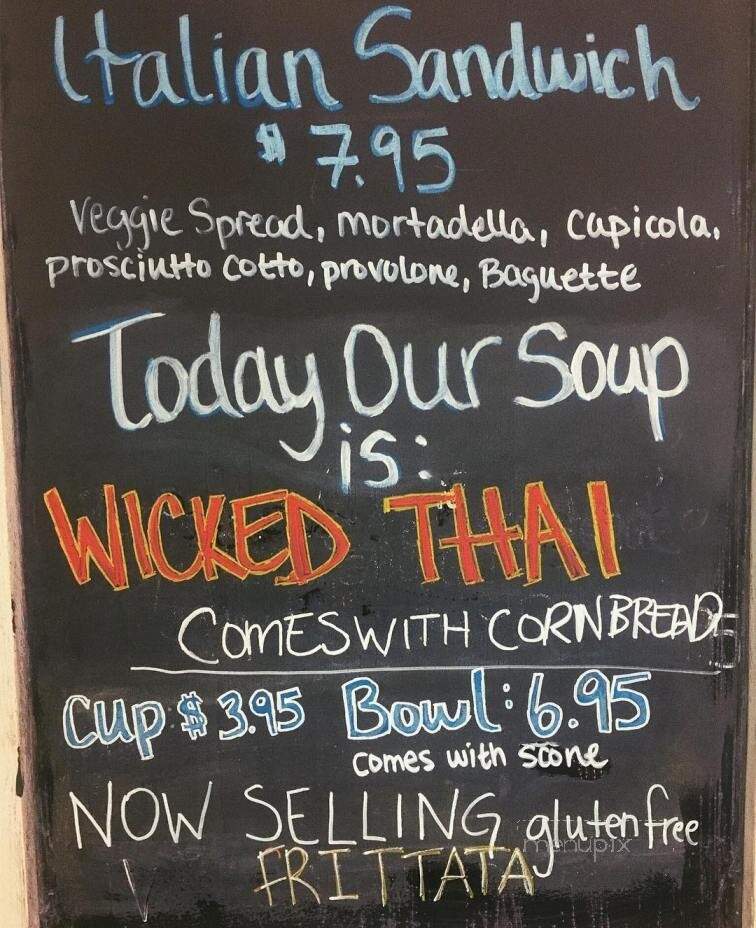 Italian Sandwich
$7.95
Veggie Spread, mortadella, capicola.
prosciutto cotto, provolone, Baguette
Today Our Soup
is:
WICKED THAI
COMES WITH CORNBREAD
Cup $3.95 Bowl: 6.95
comes with scone
NOW SELLING gluten free
menupix
FRITTATA